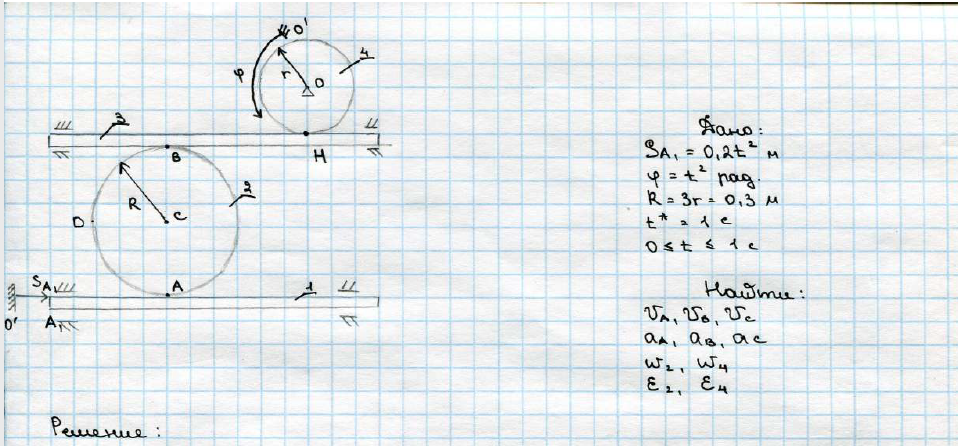 O'
4
φ
r
O
3
B
H
2
R
C
D
S_A₁
A
1
O'
A₁
Дано:
S_A₁ = 0,2t² м
φ = t² рад.
R = 3r = 0,3 м
t* = 1 с
0 ≤ t ≤ 1 с
Найти:
V_A, V_B, V_C
a_A, a_B, a_C
ω₂, ω₄
ε₂, ε₄
Решение: